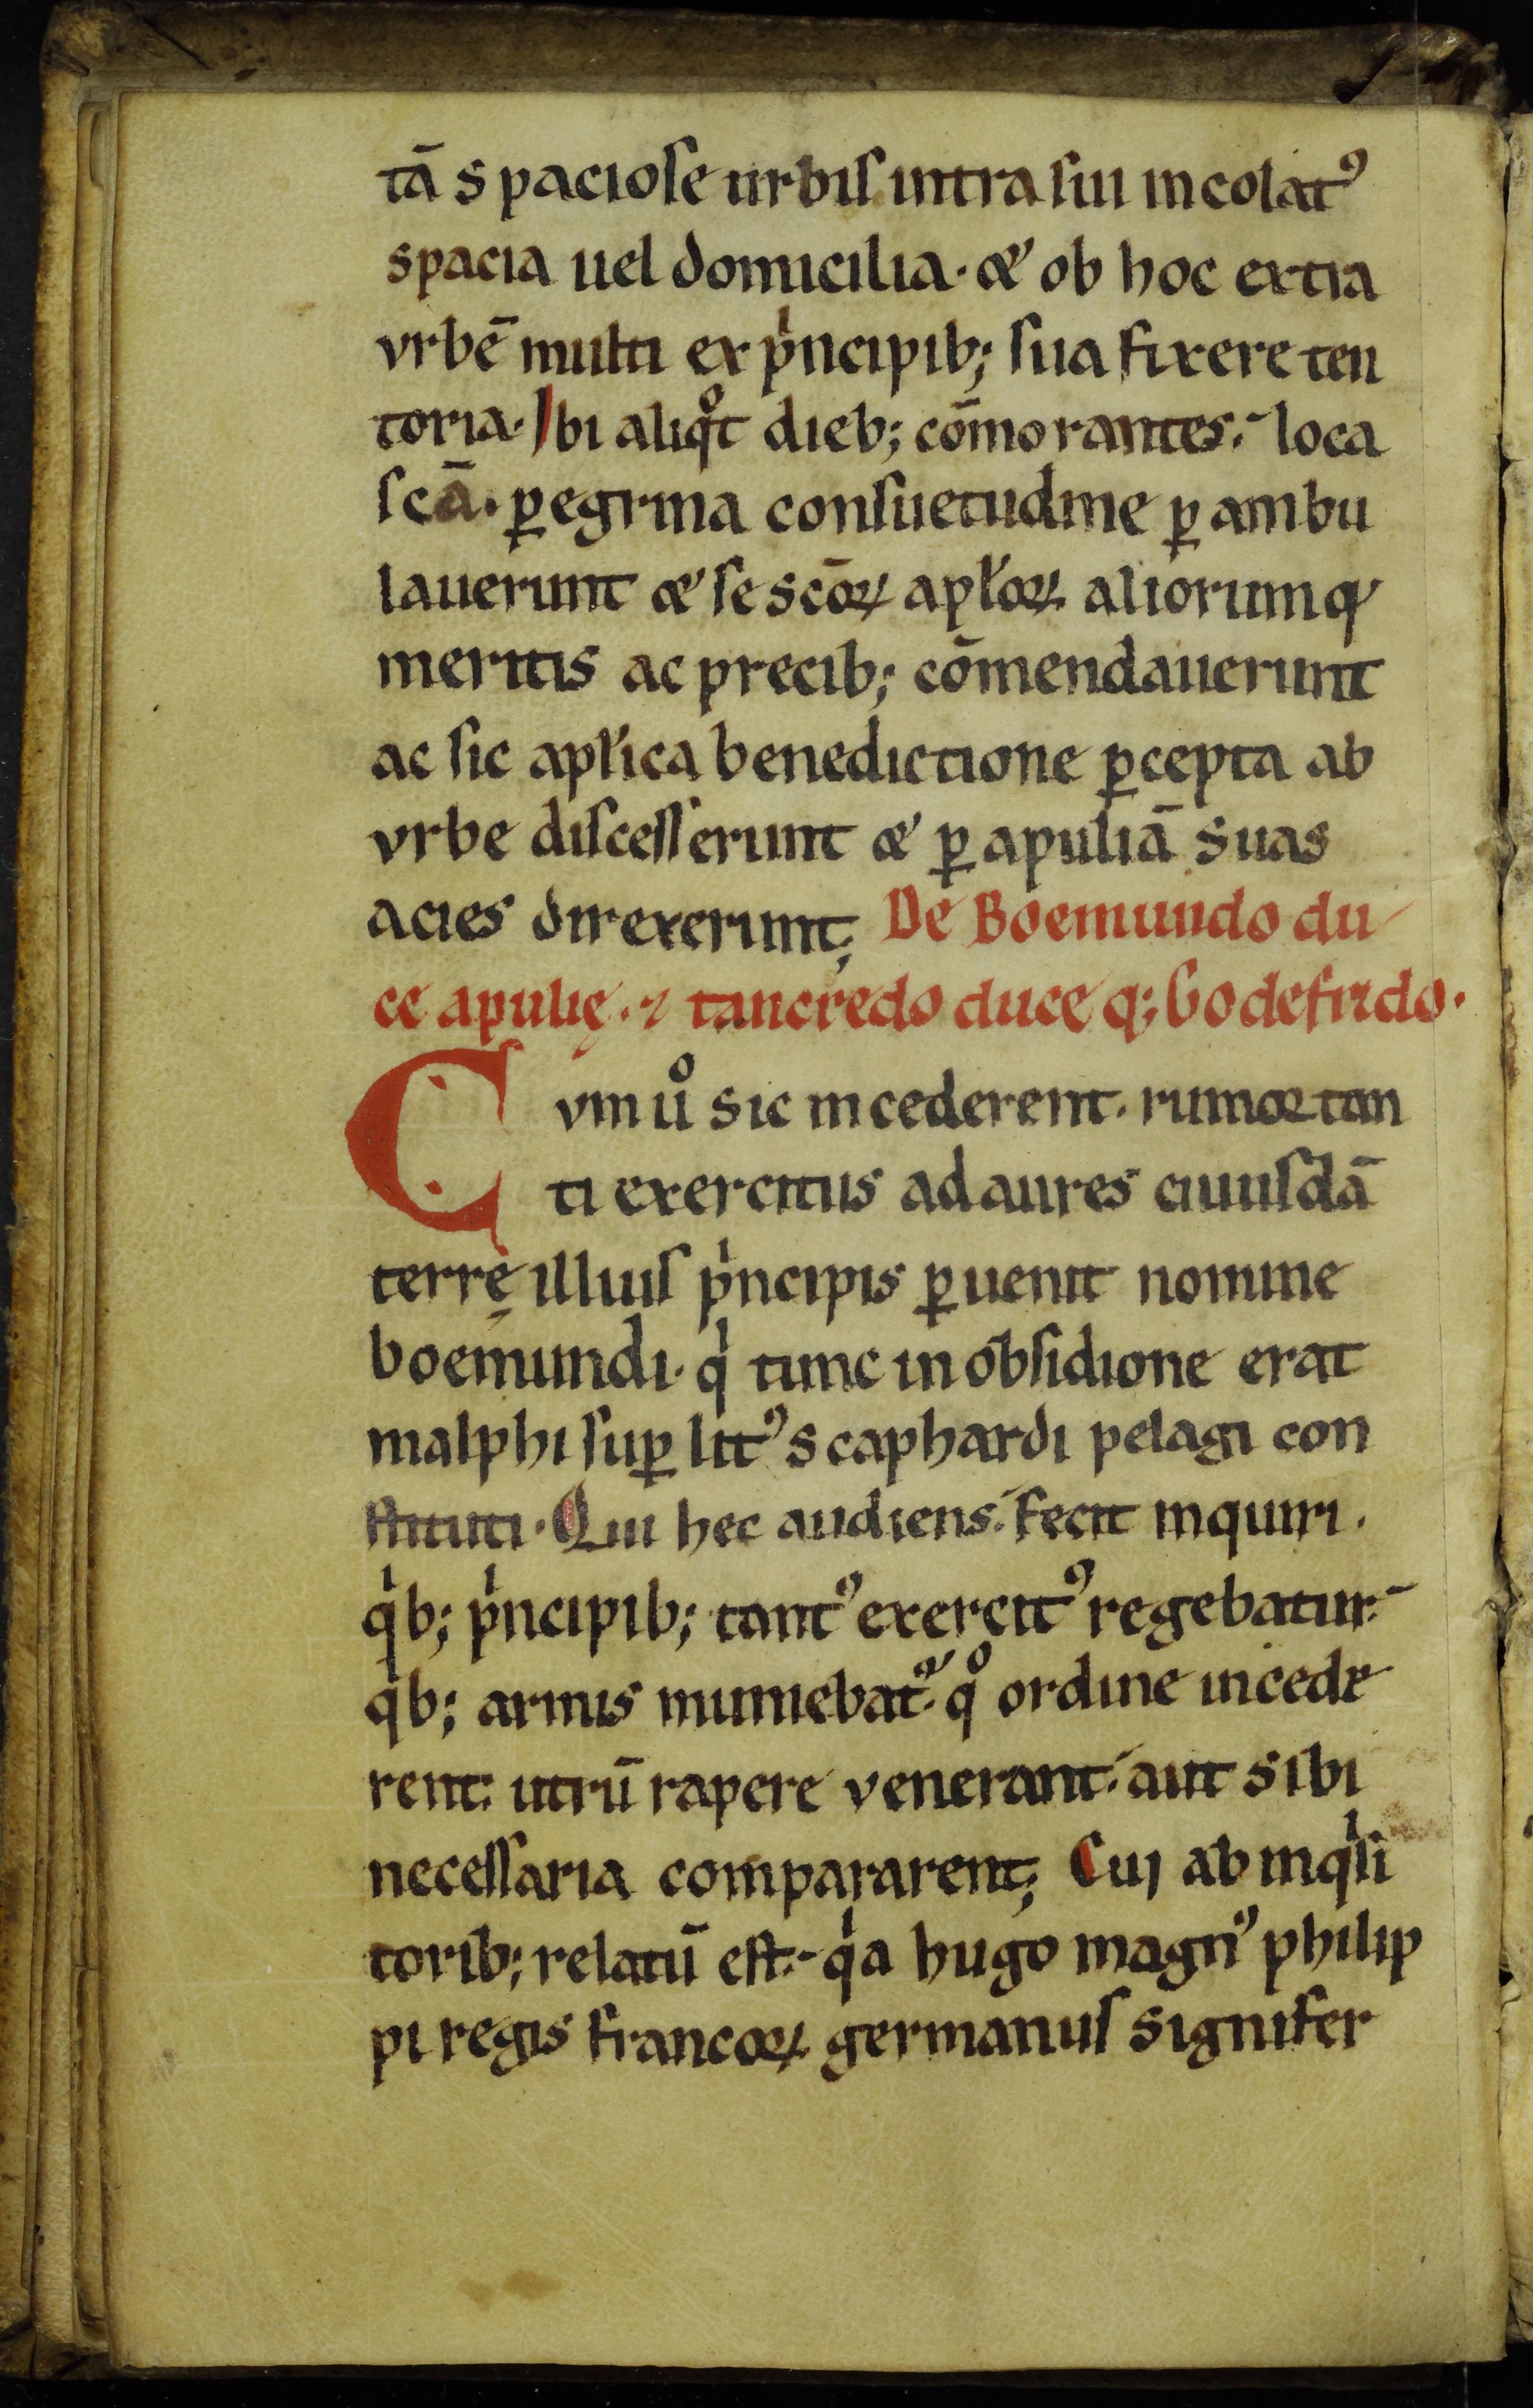 tā spaciose urbiſ intra ſui incolatꝰ
spacia uel domicilia· & ob hoc extra
vrbē multi ex pͥncipib; ſua fixere ten
toria· Ibi aliqͦt dieb; cōmorantes.- loca
ſcā· ꝑegrina conſuetudine ꝑambu
lauerunt & ſe scōꝝ apl̓oꝝ aliorumq'
meritis ac precib; cōmendauerunt
ac ſic apl̓ica benedictione ꝑcepta ab
vrbe diſceſſerunt & ꝑ apuliā suas
acies direxerunt; De Boemundo du
ce apulię· ⁊ tancredo duce q; Godefrido·
Cvm uͦ sic incederent· rumor tan
ti exercitus ad aures cuiuſdā
terrę illiuſ pͥncipis ꝑuenit nomine
boemundi· qͥ tunc in obſidione erat
malphi ſuꝑ litꝰ scaphardi pelagi con
ſtituti· Qui hec audiens.' fecit inquiri·
qͥb; pͥncipib; tantꝰ exercitꝰ regebatur.-
qͥb; armis muniebat᷑.' qͦ ordine incede
rent· utrū rapere venerant.' aut sibi
neceſſaria compararent; Cui ab inqͥſi
torib; relatū eſt.- qͥa hugo magnꝰ philip
pi regis francoꝝ germanuſ signifer